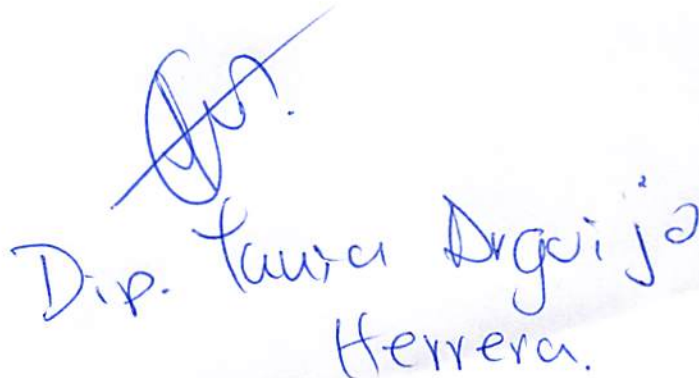 Dip. Tania Arguijo
Herrera.